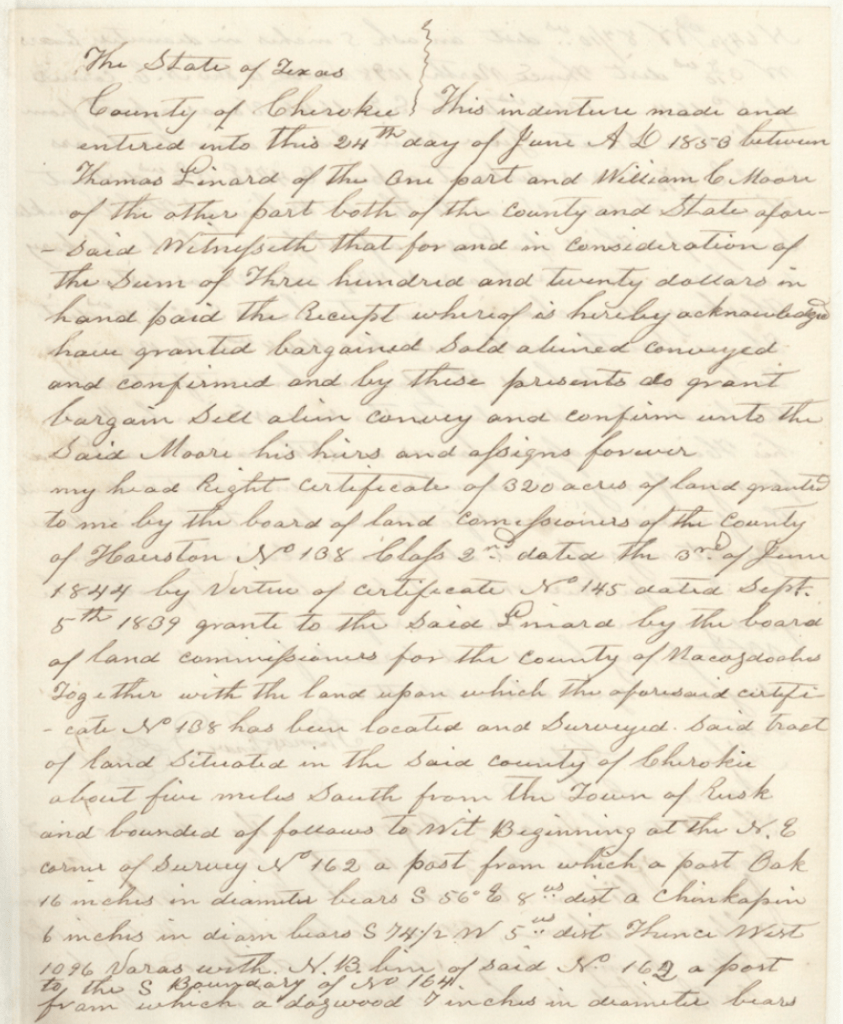 The State of Texas
County of Cherokee } This indenture made and
entered into this 24th day of June A D 1853 between
Thomas Linard of the One part and William C Moore
of the other part both of the County and State afore-
- Said Witnesseth that for and in consideration of
the Sum of Three hundred and twenty dollars in
hand paid the Receipt whereof is hereby acknowledged
have granted bargained Sold aliened conveyed
and confirmed and by these presents do grant
bargain Sell alien convey and confirm unto the
Said Moore his heirs and assigns forever
my head Right Certificate of 320 acres of land granted
to me by the board of land Comissioners of the County
of Houston No 138 Class 2nd dated the 3rd of June
1844 by Vertue of Certificate No 145 dated Sept.
5th 1839 grante to the Said Linard by the board
of land commissioners for the County of Nacogdoches
Together with the land upon which the aforesaid certifi-
- cate No 138 has been located and Surveyed. Said tract
of land Situated in the Said county of Cherokee
about five miles South from the Town of Rusk
and bounded as follows to Wit Beginning at the N. E
corner of Survey No 162 a post from which a post Oak
16 inches in diameter bears S 56° E 8 vs dist a Chinkapin
6 inches in diam bears S 74 1/2 W 5 vs dist Thence West
1096 Varas with. N. B. line of said No 162 a post
to the S Boundary of No 164
from which a dogwood 7 inches in diameter bears